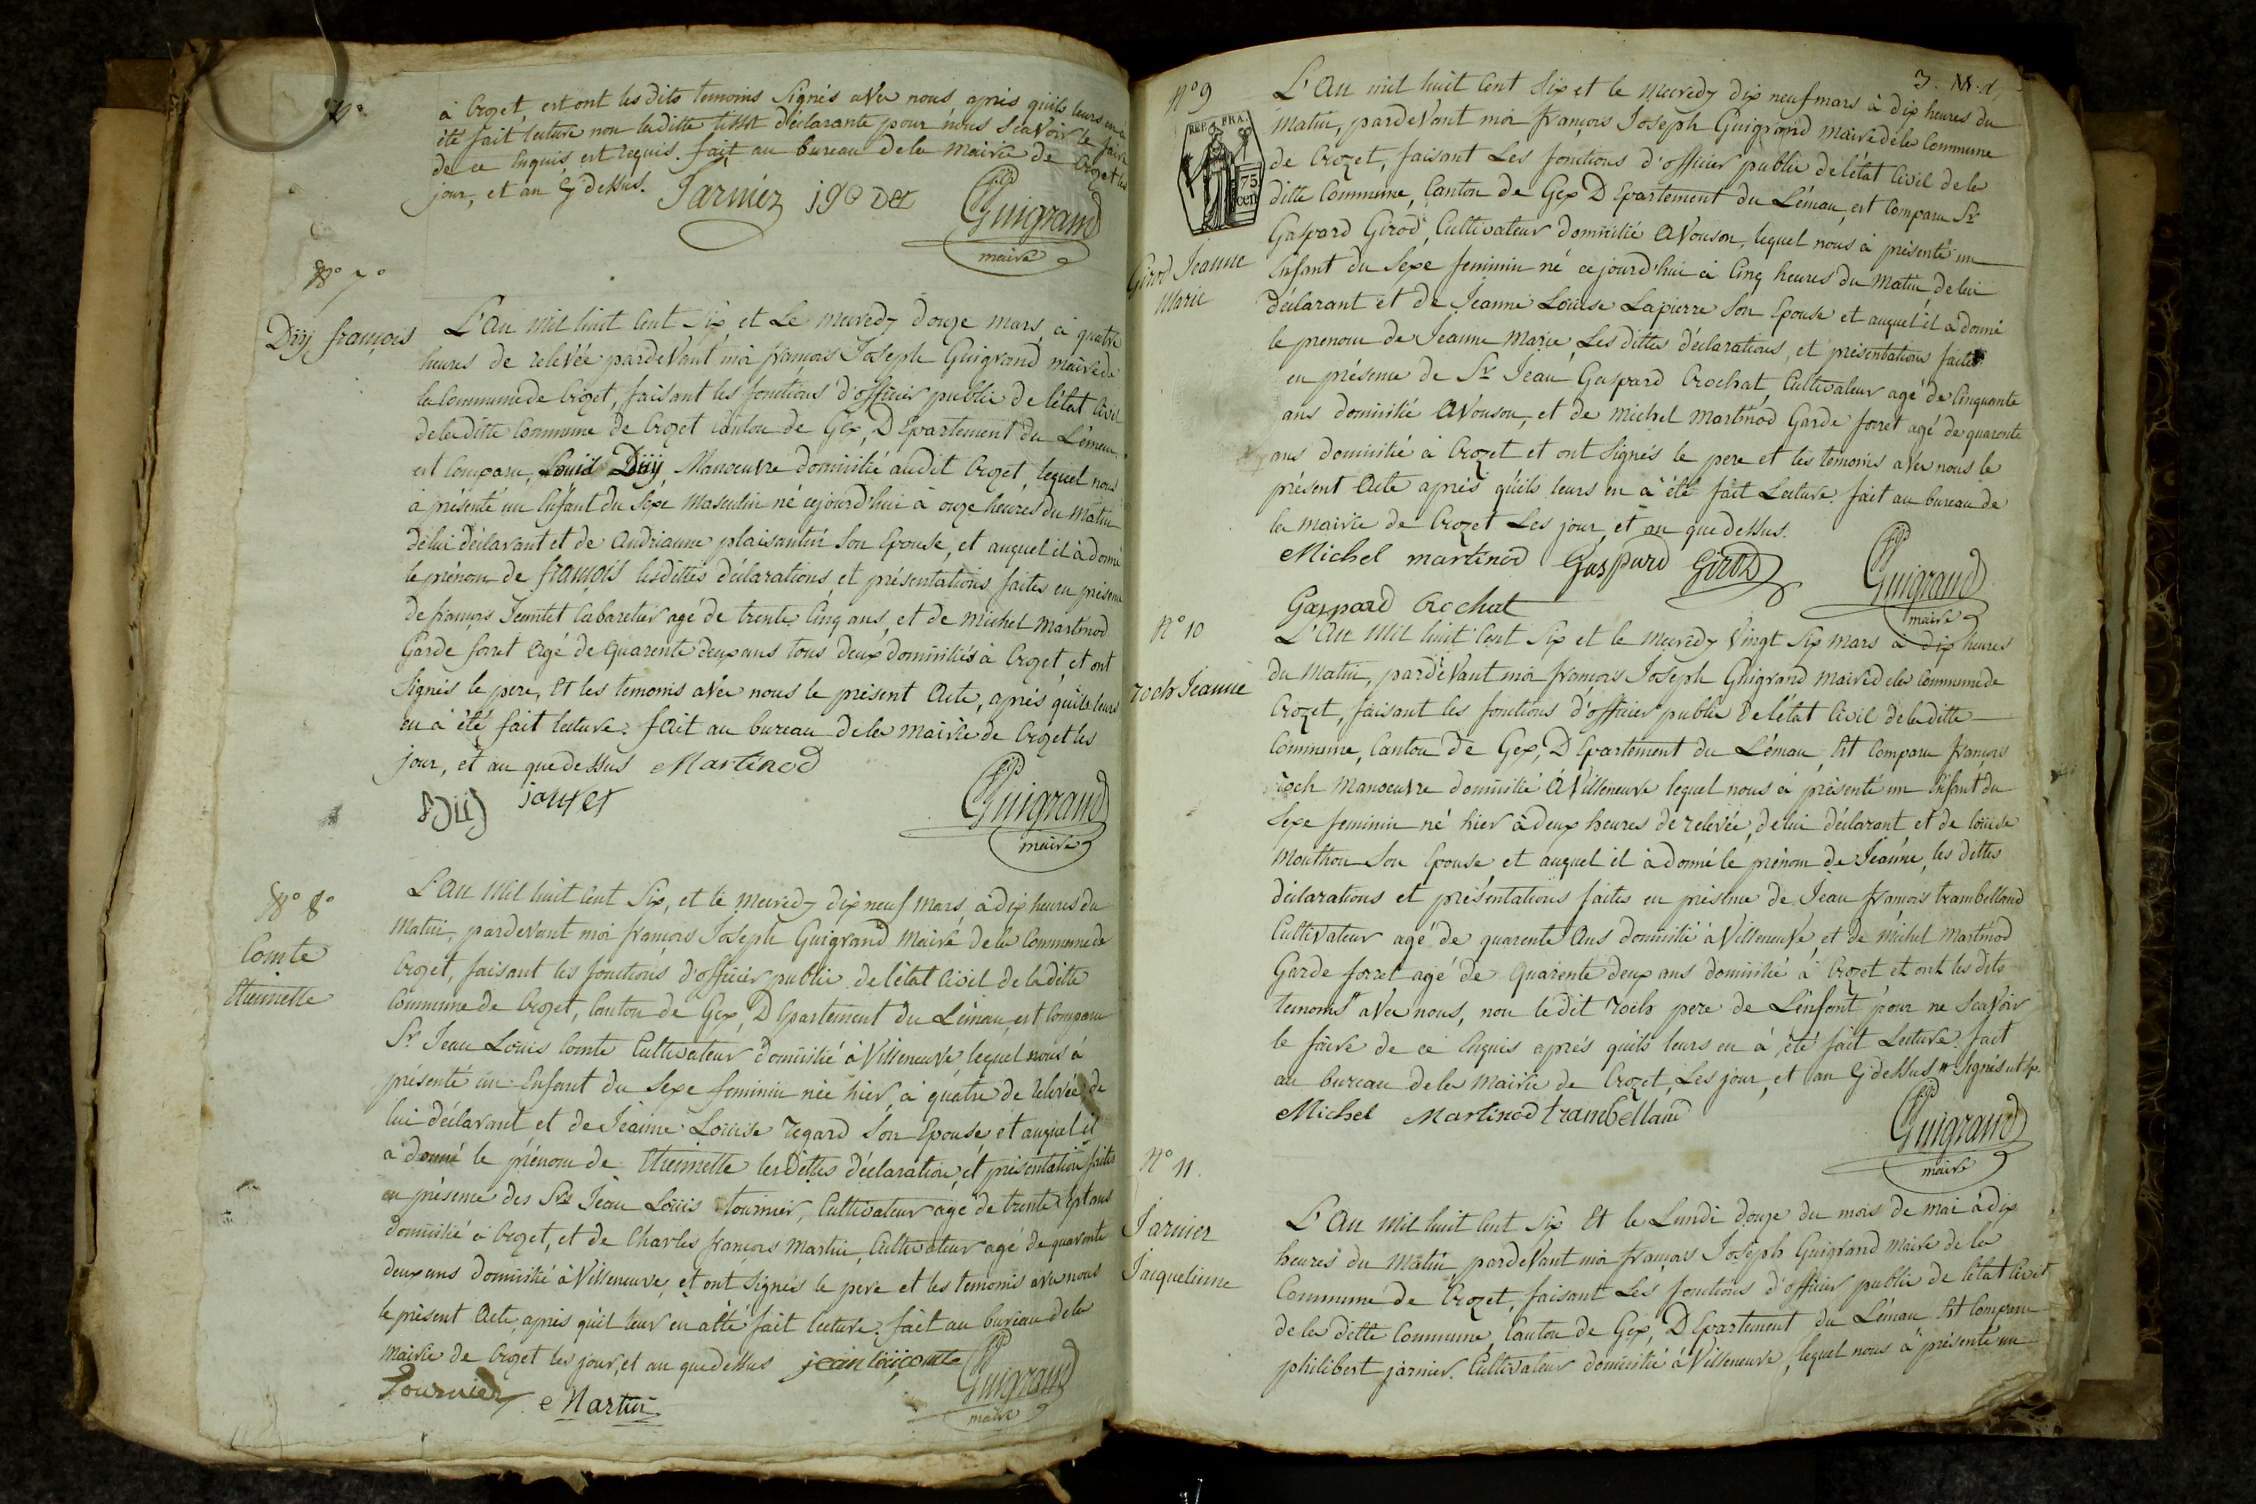 N°
à Crozet, et ont les dits temoins Signés avec nous, après qu'ils leurs en a
été fait lecture non la ditte déclarante pour nous Sçavoir le faire
de ce Enquis, et requis. fait au bureau de la Mairie de Crozet les
jour, et an q dessus. Jarnier Guigrand
maire
N° 7°
Düy françois
L'an mil huit Cent Six et Le mecredy douze mars, à quatre
heures de relevée pardevant moi françois Joseph Guigrand maire de
la Commune de Crozet, faisant les fonctions d'officier public de l'état Civil
de la ditte Commune de Crozet Canton de Gex, Département du Léman
est Comparu, Louis Düÿ, Manoeuvre domicilié audit Crozet, lequel nous
à présenté un Enfant du Sexe Masculin né cejourd'hui à onze heures du Matin
de lui déclarant et de Andrianne plaisantin Son Epouse, et auquel il à donné
le prénom de françois lesdittes déclarations, et présentations faites en présence
de françois Cabaretier agé de trente Cinq ans, et de Michel Martinod
Garde forret Agé de quarente deux ans tous deux domiciliés à Crozet, et ont
Signés le pere, Et les temoins avec nous le présent Acte, après qu'ils leurs
en à été fait lecture. fait au bureau de la Mairie de Crozet les
jour, et an que dessus Martinod
Düÿ Guigrand
maire
N° 8°
Comte
Etiennette
L'an Mil huit Cent Six, et le Mecredy dix neuf Mars, à dix heures du
Matin, pardevant moi françois Joseph Guigrand Maire de la Commune de
Crozet, faisant les fonctions d'officier public de l'état Civil de la ditte
Commune de Crozet, Canton de Gex, Département du Léman, est Comparu
Sr Jean Louis Comte Cultivateur domicilié à Villeneuve lequel nous à
présenté un Enfant du Sexe feminin née hier, à quatre de relevée de
lui déclarant et de Jeanne Louise regard Son Epouse, et auquel il
à donné le prénom de Etiennette les Dittes déclaration, et présentation faites
en présence des Srs Jean Louis tournier, Cultivateur agé de trente Sept ans
domicilié à Crozet, et de Charles françois Martin, Cultivateur agé de quarente
deux ans domicilié à Villeneuve, et ont Signés le pere et les temoins avec nous
le présent Acte, après qu'il leur en a été fait lecture. fait au bureau de la
Mairie de Crozet les jour, et an que dessus jean loui comte
Tournier Martin Guigrand
maire
3. M.d
N° 9
REP. FRA.
75
cen
Girod Jeanne
Marie
L'an mil huit Cent Six et le Mecredy dix neuf mars à dix heures du
Matin, pardevant moi françois Joseph Guigrand Maire de la Commune
de Crozet, faisant Les fonctions d'officier public de l'état Civil de la
ditte Commune, Canton de Gex Département du Léman, est Comparu Sr
Gaspard Girod, Cultivateur domicilié Avouson, lequel nous à présenté un
Enfant du Sexe feminin né cejourd'hui à Cinq heures du Matin de lui
déclarant et de Jeanne Louise Lapierre Son Epouse et auquel il à donné
le prenom de Jeanne Marie, Les dittes déclarations, et présentations faites
en présence de Sr Jean Gaspard Crochat, Cultivateur agé de Cinquante
ans domicilié Avouson, et de Michel Martinod Garde forret agé de quarente
ans domicilié à Crozet et ont Signés le pere et les temoins avec nous le
présent Acte après qu'ils leurs en à été fait Lecture. fait au bureau de
la mairie de Crozet Les jour, et an que dessus.
Michel martinod Gaspard Girod Guigrand
Gaspard Crochat maire
N° 10
roch Jeanne
L'an Mil huit Cent Six et le mecredy Vingt Six Mars à dix heures
du Matin, pardevant moi françois Joseph Guigrand Maire de la Commune de
Crozet, faisant les fonctions d'officier public de l'état Civil de la ditte
Commune, Canton de Gex, Département du Léman, Est Comparu françois
roch Manoeuvre domicilié à Villeneuve lequel nous à présenté un Enfant du
Sexe feminin né hier à deux heures de relevée, de lui déclarant et de louise
Mouthon Son Epouse et auquel il à donné le prénom de Jeanne, les dittes
déclarations et présentations faites en présence de Jean françois trambelland
Cultivateur agé de quarente Ans domicilié à Villeneuve, et de Michel Martinod
Garde forret agé de Quarente deux ans domicilié à Crozet et ont les dits
temoins avec nous, non le dit roch pere de L'enfent pour ne Scavoir
le faire de ce Enquis après qu'ils leurs en à été fait Lecture. fait
au bureau de la Mairie de Crozet, Les jour, et an q dessus Signés
Michel Martinod trambelland Guigrand
maire
N° 11.
Jarnier
Jacqueline
L'an Mil huit Cent Six Et le Lundi douze du mois de Mai à dix
heures du Matin, pardevant moi françois Joseph Guigrand Maire de la
Commune de Crozet, faisant Les fonctions d'officier public de l'état Civil
de la ditte Commune, Canton de Gex, Département du Léman Est Comparu
philibert jarnier Cultivateur domicilié à Villeneuve, lequel nous à présenté un